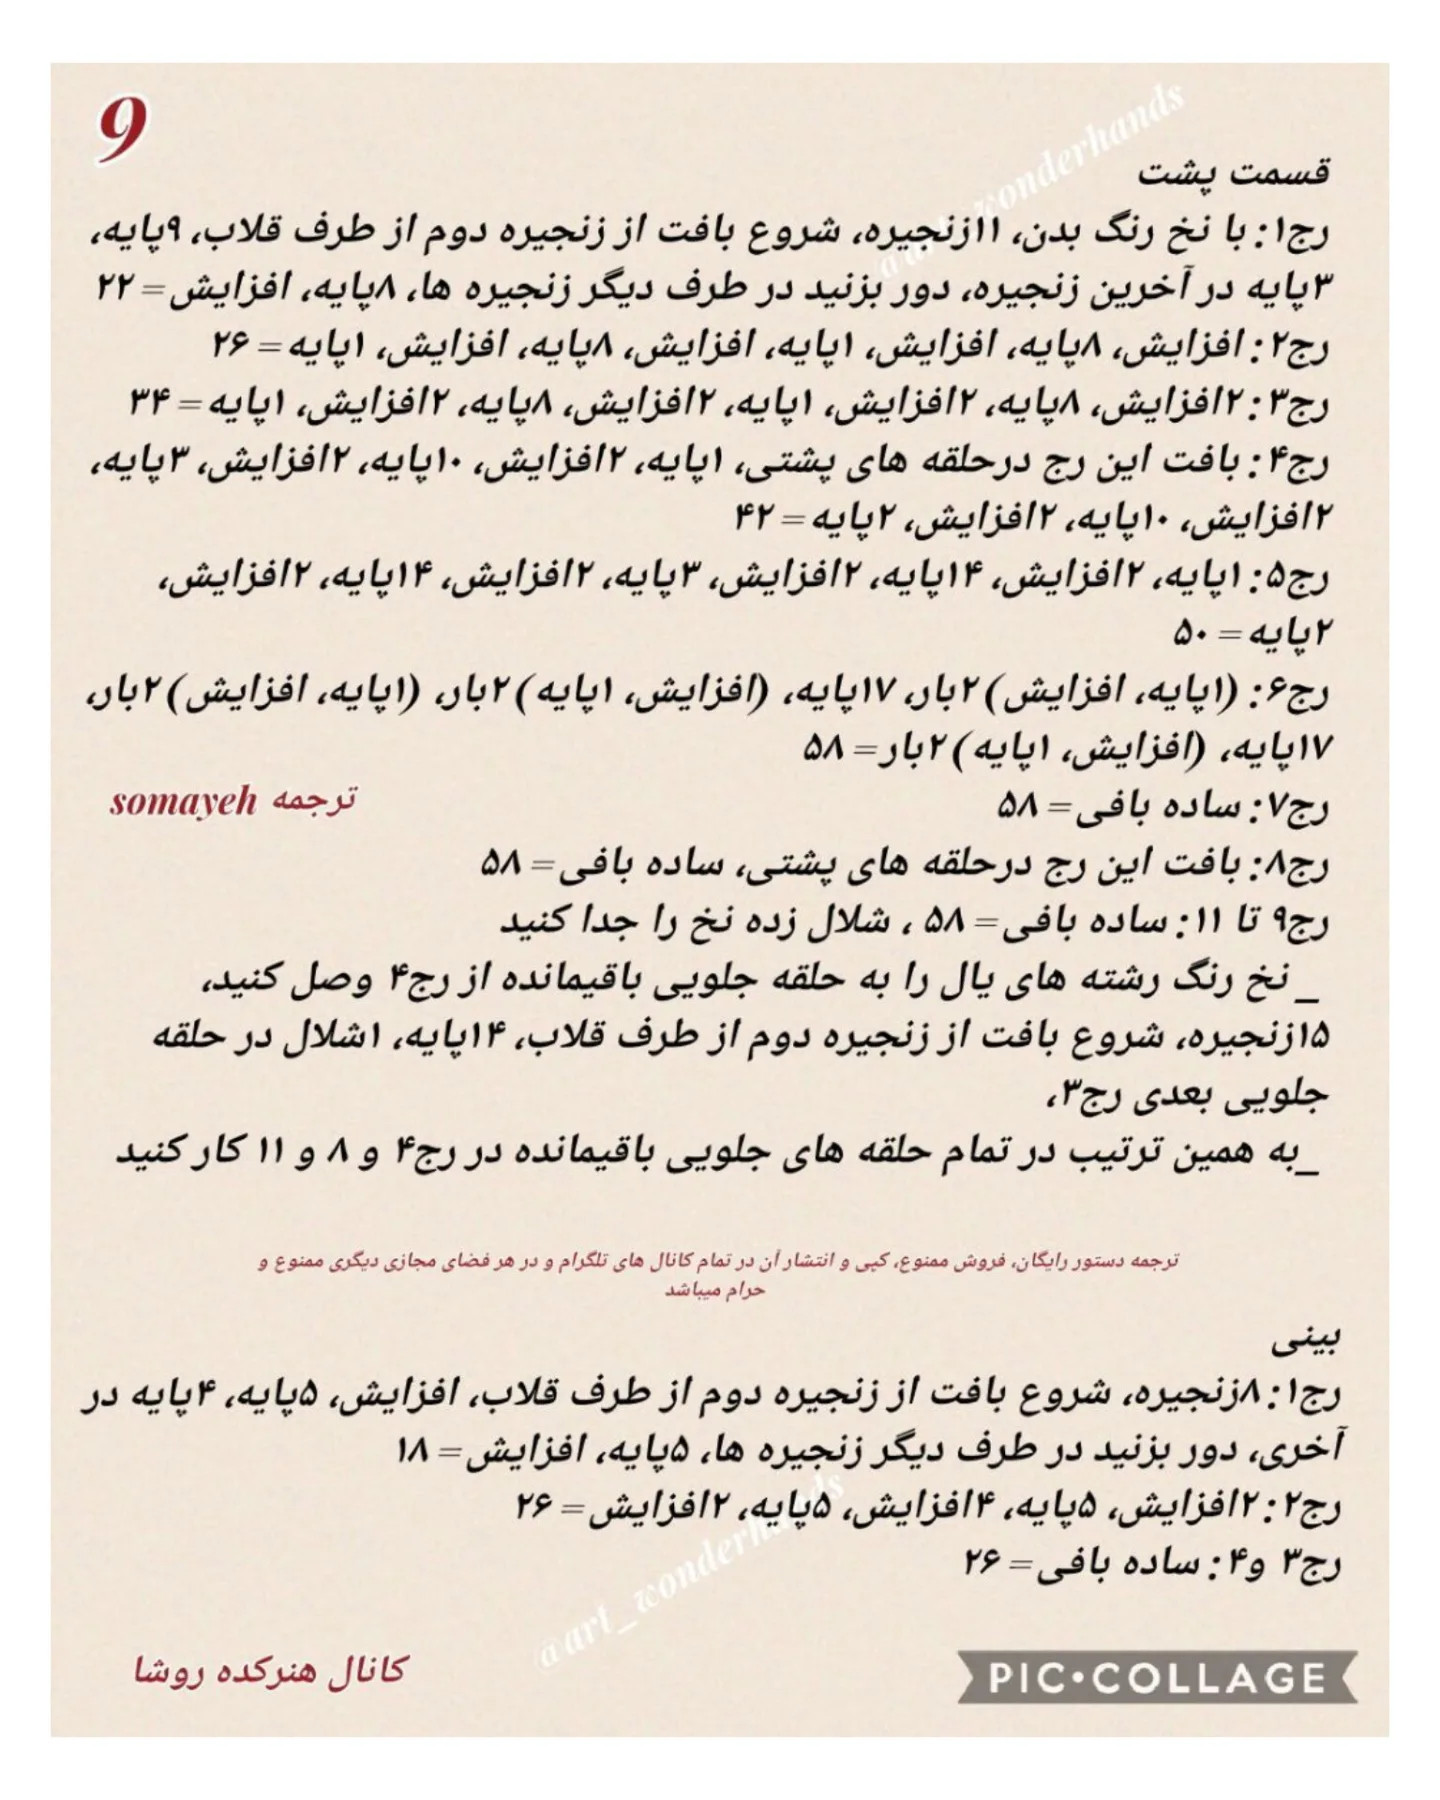 9
@art_wonderhands
قسمت پشت
رج۱: با نخ رنگ بدن، ۱۱زنجیره، شروع بافت از زنجیره دوم از طرف قلاب، ۹پایه،
۳پایه در آخرین زنجیره، دور بزنید در طرف دیگر زنجیره ها، ۸پایه، افزایش= ۲۲
رج۲: افزایش، ۸پایه، افزایش، ۱پایه، افزایش، ۸پایه، افزایش، ۱پایه= ۲۶
رج۳: ۲افزایش، ۸پایه، ۲افزایش، ۱پایه، ۲افزایش، ۸پایه، ۲افزایش، ۱پایه= ۳۴
رج۴: بافت این رج درحلقه های پشتی، ۱پایه، ۲افزایش، ۱۰پایه، ۲افزایش، ۳پایه،
۲افزایش، ۱۰پایه، ۲افزایش، ۲پایه= ۴۲
رج۵: ۱پایه، ۲افزایش، ۱۴پایه، ۲افزایش، ۳پایه، ۲افزایش، ۱۴پایه، ۲افزایش،
۲پایه= ۵۰
رج۶: (۱پایه، افزایش)۲بار، ۱۷پایه، (افزایش، ۱پایه)۲بار، (۱پایه، افزایش)۲بار،
۱۷پایه، (افزایش، ۱پایه)۲بار= ۵۸
رج۷: ساده بافی= ۵۸
ترجمه somayeh
رج۸: بافت این رج درحلقه های پشتی، ساده بافی= ۵۸
رج۹ تا ۱۱: ساده بافی= ۵۸ ، شلال زده نخ را جدا کنید
_ نخ رنگ رشته های یال را به حلقه جلویی باقیمانده از رج۴ وصل کنید،
۱۵زنجیره، شروع بافت از زنجیره دوم از طرف قلاب، ۱۴پایه، ۱شلال در حلقه
جلویی بعدی رج۳،
_به همین ترتیب در تمام حلقه های جلویی باقیمانده در رج۴ و ۸ و ۱۱ کار کنید
ترجمه دستور رایگان، فروش ممنوع، کپی و انتشار آن در تمام کانال های تلگرام و در هر فضای مجازی دیگری ممنوع و
حرام میباشد
بینی
رج۱: ۸زنجیره، شروع بافت از زنجیره دوم از طرف قلاب، افزایش، ۵پایه، ۴پایه در
آخری، دور بزنید در طرف دیگر زنجیره ها، ۵پایه، افزایش= ۱۸
رج۲: ۲افزایش، ۵پایه، ۴افزایش، ۵پایه، ۲افزایش= ۲۶
رج۳ و۴: ساده بافی= ۲۶
@art_wonderhands
کانال هنرکده روشا
PIC•COLLAGE